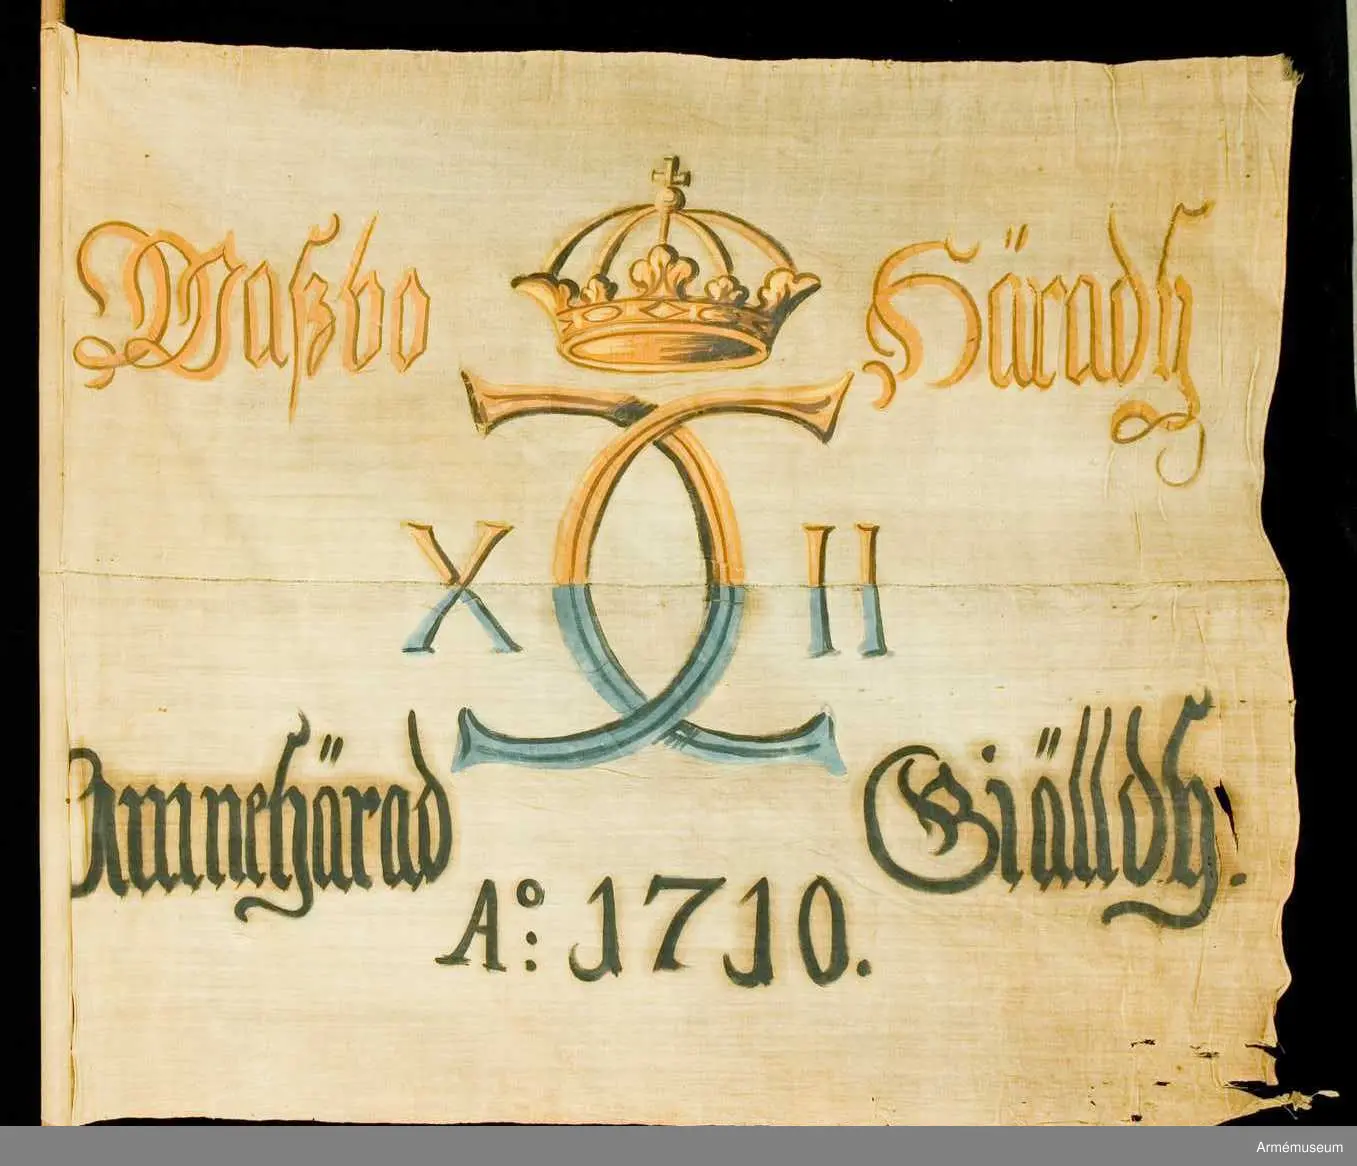 Waßbo Häradh
X CC II
Amnehärad Giälldh.
Ao: 1710.
Armémuseum